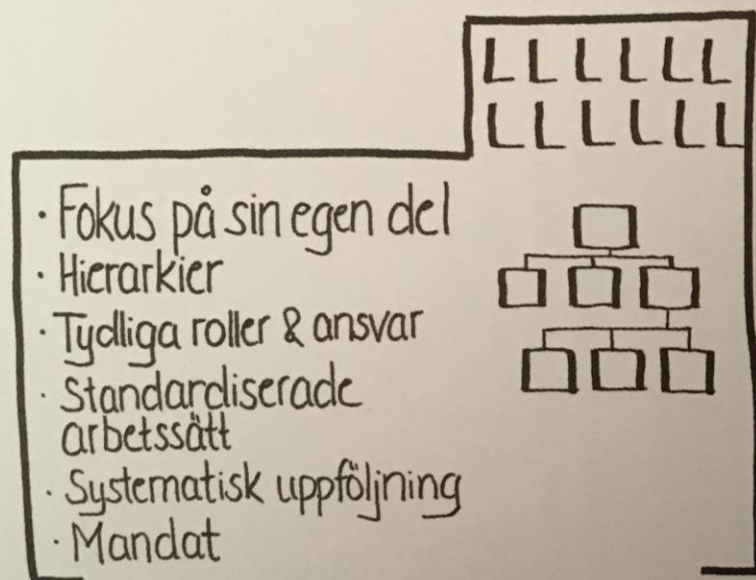 L L L L L L
L L L L L L
· Fokus på sin egen del
· Hierarkier
· Tydliga roller & ansvar
· Standardiserade
arbetssätt
· Systematisk uppföljning
· Mandat